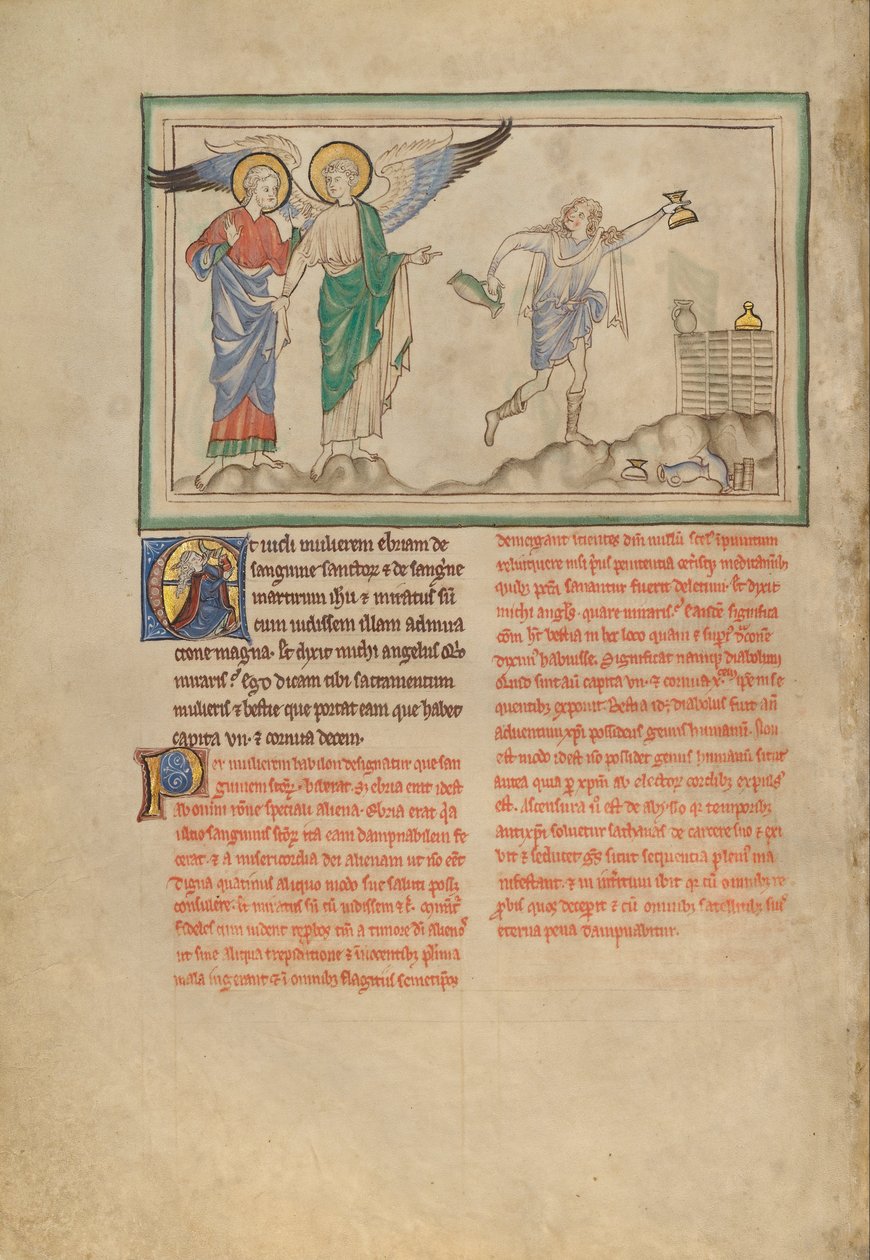 Et vidi mulierem ebriam de
sanguine sanctoꝝ ⁊ de sang̾ne
martirum ihu ⁊ miratus sū
cum vidissem illam admira
cione magna. Et dixit michi angelus Q̾re
miraris? Ego dicam tibi sacramentum
mulieris ⁊ bestie que portat eam que habet
capita vii. ⁊ cornua decem.
Per mulierem babilon designatur que san
guinem sc̄oꝝ biberat. ebria erat id est
ab omni rōne speciali aliena. Ebria erat q̾a
sanguinis sc̄oꝝ ita eam dampnabilem fe
cerat. ⁊ a misericordia dei alienam ut nō eēt
digna quatinus aliquo modo sue saluti poss;
consulere. Et miratus sū cū vidissem ⁊ c̄.
fideles cum vident rep̄bos tm̄ a timore dī alienos
ut sine aliqua trepidatione ⁊ īnocentibꝫ pl̄ima
mala ingerant ⁊ ī omnibꝫ flagitiis semetip̄os
demergant scientes dm̄ nullū scel̾ īpunitum
relinquere nisi p̾us penitentia
quibꝫ sanantur fuerit deletum. Et dixit
michi angl̾s. quare miraris? eandē significa
cōm h̄t bestia in hoc loco quam ⁊ sup̾i' d̾cōne
dixim' habuisse. Significat namqꝫ diabolum
Quid sint aū capita vii. ⁊ cornua x. ip̄e in se
quentibꝫ exponit. Bestia id; diabolus fuit an̄
aduentum xp̄i possidens genus humanū. Non
est modo id est nō possidet genus humanū sicut
antea quia p̱ xp̄m ab electoꝝ cordibꝫ expuls'
est. Ascensura ū est de abysso qr̄ temporibꝫ
antixp̄i soluetur sathanas de carcere suo ⁊ exi
bit ⁊ seducet gēs sicut sequentia plenius ma
nifestant. ⁊ in int̾itum ibit qr̄ cū omnibꝫ re
p̱bis quos deceperit ⁊ cū omnibꝫ satellitibꝫ suis
eterna pena dampnabitur.